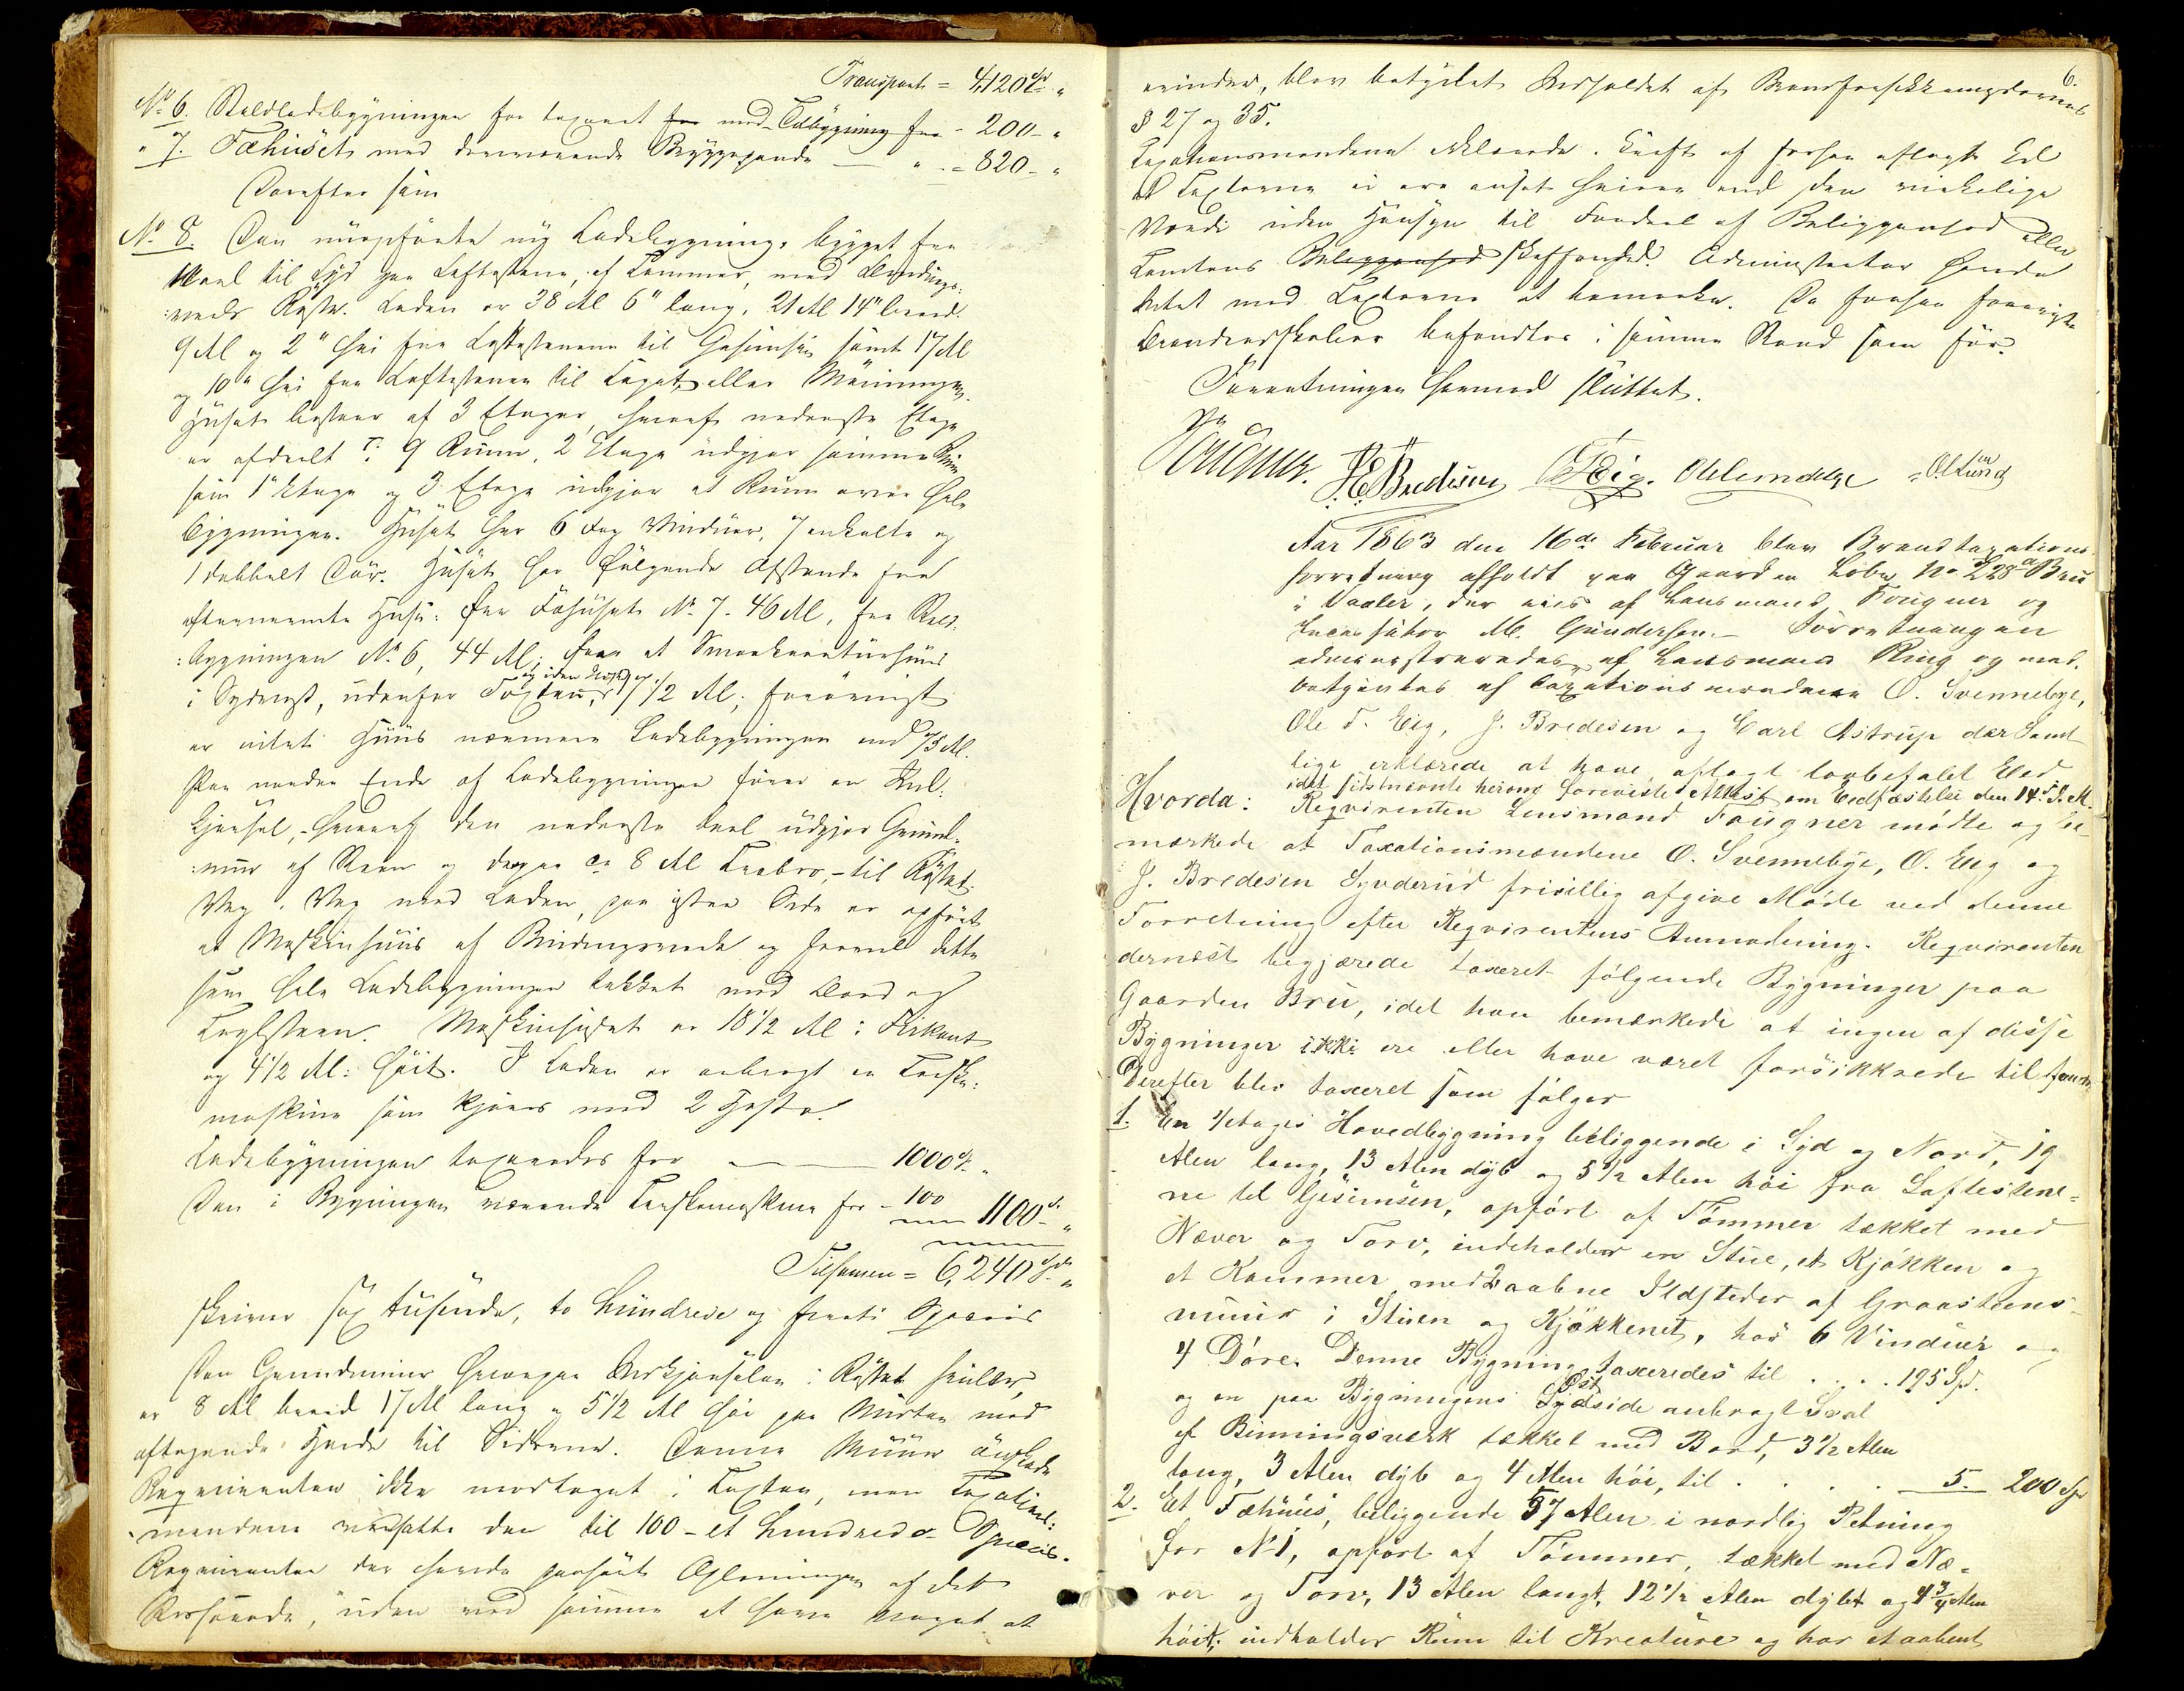 Transport = 4,120 Spd "
No 6. Staldladebygningen før taxeret for med Tilbygning for - 200 - "
" 7. Fæhuset med derværende Bryggepande — " - = 820 - "
Derefter som
No 8. Den nyopførte ny Ladebygning, bygget fra
til Syd paa Løftestene, af Tømmer, med Bindings-
værks Røste. Laden er 38 Al 6" lang, 21 Al 14" bred.
9 Al og 2" høi fra Løftestenene til Gesimsen samt 17 Al
og 10" høi fra Løftestenen til Taget eller Møningen.
Huset bestaar af 3 Etager, hvoraf nederste Etage
er afdeelt i 9 Rum, 2 Etage udgjør samme Rum
som 1e Etage og 3 Etage udgjør et Rum over hele
bygningen. Huset har 6 Fag Vinduer, 7 enkelte og
1 dobbelt Dør. Huset har følgende Afstande fra
efternævnte Huse: fra Fæhuset No 7. 46 Al, fra Stald-
bygningen No 6, 44 Al; fra et Smaakreaturhuus
i Sydvest, udenfor Taxten, 1/2 Al; forøvrigt
er intet Huus nærmere Ladebygningen end 75 Al.
Paa nordre Ende af Ladebygningen fører en Ind-
kjørsel, - hvoraf den nederste Deel udgjør Grund-
muur af Steen og derpaa ca 8 Al Træbro, - til Røstet.
Væg i Væg med Laden, paa østre Side er opført
et Maskinhuus af Bindingsværk og saavel dette
som hele Ladebygningen tækket med Bord og
Teglsteen. Maskinhuset er 18 1/2 Al i Firkant
og 4 1/2 Al: høit. I Laden er anbragt en Tærske-
maskine som kjøres med 2 Heste.
Ladebygningen taxeredes for — — 1000 Spd "
Den i Bygningen værende Tærskemaskine for - 100 1100 - "
Tilsamen = 6,240 Spd "
skriver sex tusende, to hundrede og firti Species
Den Grundmuur hvorpaa Indkjørselen i Røstet hviler,
er 8 Al breed 17 Al lang og 5 1/2 Al høi paa Midten med
aftagende Høide til Siderne. Denne Muur ønskede
Reqvirenten ikke medtaget i Taxten, men Taxations-
mændene værdsatte den til 100 - et hundrede Species.
Reqvirenten der havde paahørt Oplæsningen af det
Anførte, uden ved samme at have noget at
6.
erindre, blev betydet Indholdet af Brandforsikkringslovens
§ 27 og 35.
Taxationsmændene erklærede i Kraft af forhen aflagte Eed
at Taxterne ei ere ansat høiere end den virkelige
Værdi uden Hensyn til Fordeel af Beliggenhed eller
Tomtens Beliggenhed skaffenhed. Administrator havde
Intet med Taxterne at bemærke. De forhen foreviste
Brandredskaber befandtes i samme Stand som før.
Forretningen hermed sluttet.
Fougner. J.E. Bredesen O T Eig. O.Lund
Aar 1863 den 16de Februar blev Brandtaxations-
forretning afholdt paa Gaarden Løbe No 228 a Bru
i Vaaler, der eies af Lensmand Fougner og
M. Gundersen. - Forretningen
administreredes af Lensmand Ring og med-
betjentes af Taxationsmændene O. Svennebye,
Ole T. Eig, J. Bredesen og Carl Astrup der samt-
lige erklærede at have aflagt lovbefalet Eed
idet sidstnævnte herom foreviste Attest om Eedfæstelse den 14de d. M.
Hvorda: Reqvirenten Lensmand Fougner mødte og be-
mærkede at Taxationsmændene O. Svennebye, O. Eig og
J. Bredesen Synderud frivillig afgive Møde ved denne
Forretning efter Reqvirentens Anmodning. Reqvirenten
dernæst begjærede taxeret følgende Bygninger paa
Gaarden Bru, idet han bemærkede at ingen af disse
Bygninger ikke ere eller have været forsikkrede tilforn.
Derefter blev taxeret som følger
1. En 1 etages Hovedbygning beliggende i Syd og Nord, 19
Alen lang, 13 Alen dyb og 5 1/2 Alen høi fra Løftestene-
ne til Gesimsen, opført af Tømmer tækket med
Næver og Torv, indeholder en Stue, et Kjøkken og
et Kammer med 2 aabne Ildsteder af Graasteens-
muur i Stuen og Kjøkkenet, har 6 Vinduer og
4 Døre. Denne Bygning taxeredes til . . . . 195 Spd.
og en paa Bygningens Sydside Øst anbragt Sval
af Binningsværk tækket med Bord, 3 1/2 Alen
lang, 3 Alen dyb og 4 Alen høi, til . . . . 5. 200 Spd
2. Et Fæhuus, beliggende 57 Alen i nordlig Retning
for No 1, opført af Tømmer, tækket med Næ-
ver og Torv, 13 Alen langt, 12 1/2 Alen dybt og 4 3/4 Alen
høit, indholder Rum til Kreature og har et aabent